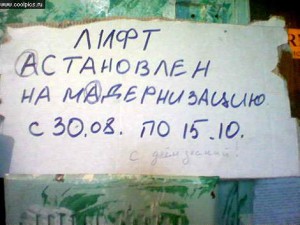 www.coolpics.ru
ЛИФТ
АСТАНОВЛЕН
НА МАДЕРНИЗАЦИЮ
С 30.08. ПО 15.10.